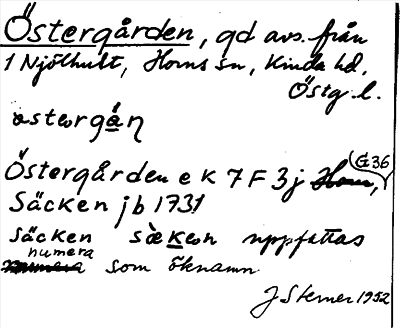 Östergården, gd avs. från
1 Njölhult, Horns sn, Kinda hd,
Östg. l.
östergån
Östergården e k 7 F 3 j Horn, G36
Säcken jb 1731
Säcken sèken uppfattas
numera
som öknamn
J Sterner 1952